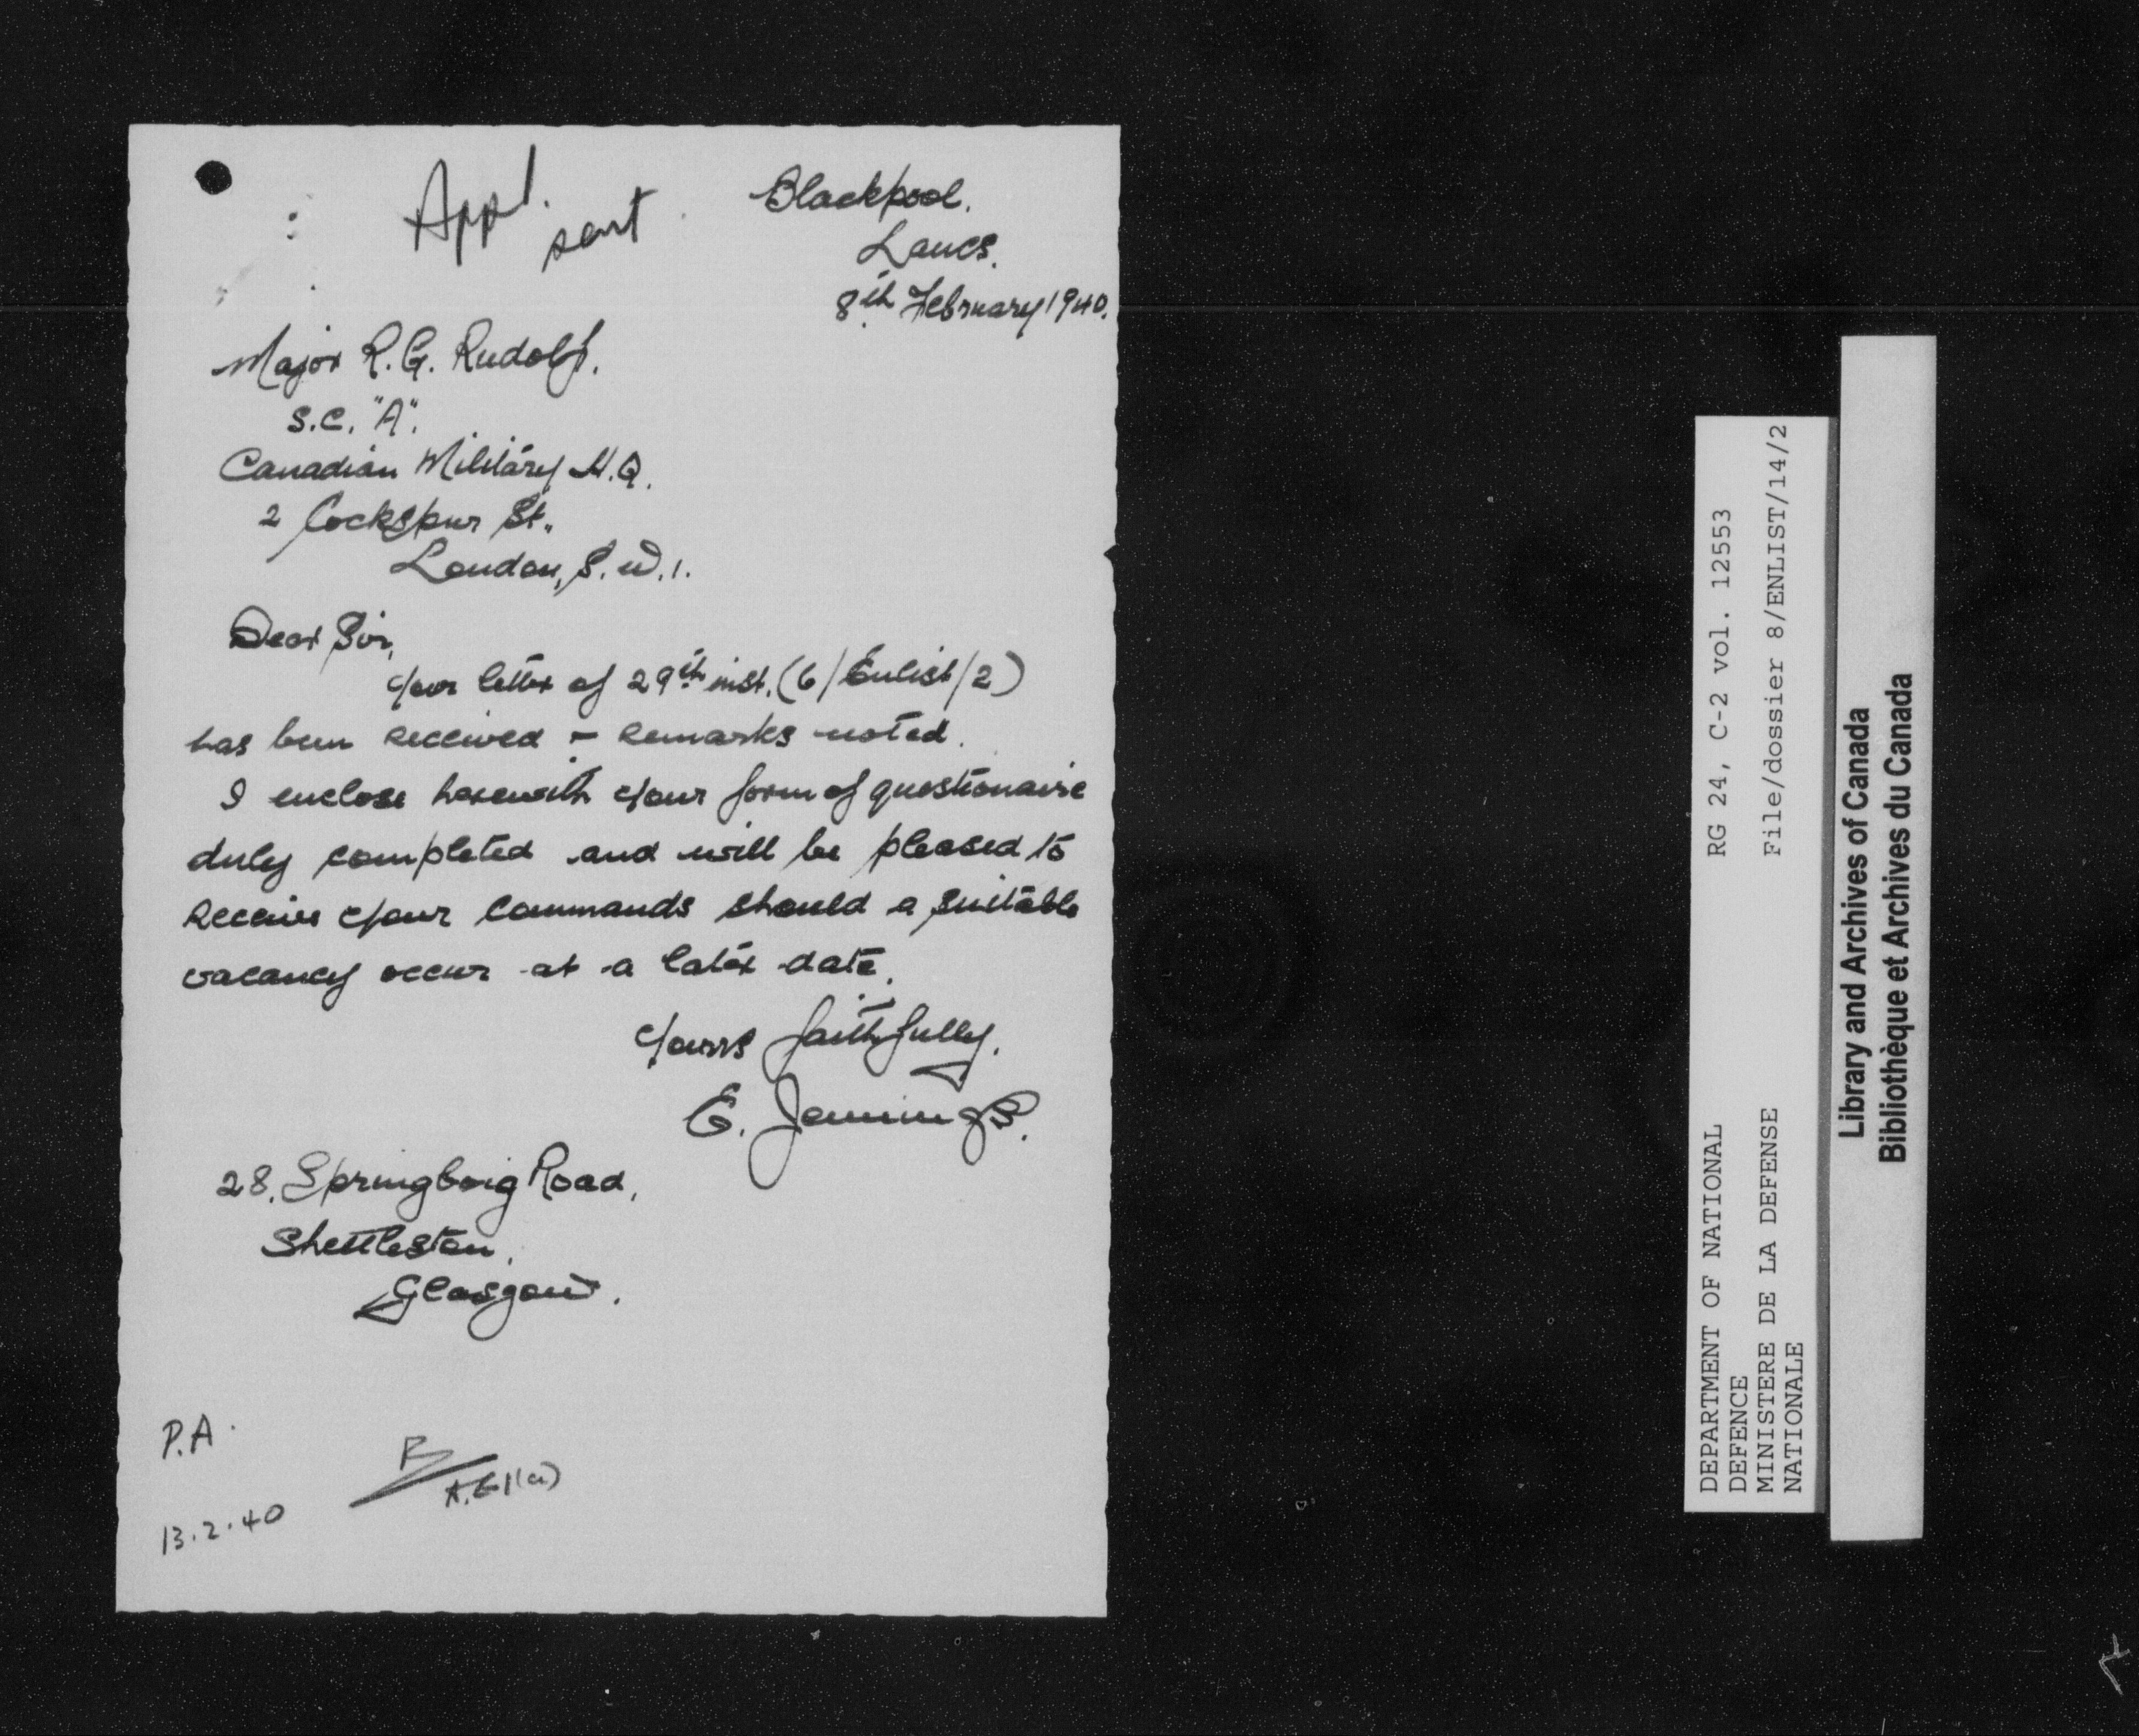 Appl.
sent
Blackpool.
Lancs.
8th February 1940.
Major R.G. Rudolf.
S.C. "A".
Canadian Military H.Q.
2 Cockspur St.,
London, S.W.1.
Dear Sir,
Your letter of 29th inst. (6/Enlist/2)
has been received - remarks noted.
I enclose herewith your form of questionaire
duly completed and will be pleased to
receive your commands should a suitable
vacancy occur at a later date.
Yours faithfully,
E. Jennings.
28, Springboig Road,
Shettleston,
Glasgow.
P.A.
13.2.40
RG 24, C-2 vol. 12553
File/dossier 8/ENLIST/14/2
DEPARTMENT OF NATIONAL
DEFENCE
MINISTERE DE LA DEFENSE
NATIONALE
Library and Archives of Canada
Bibliothèque et Archives du Canada